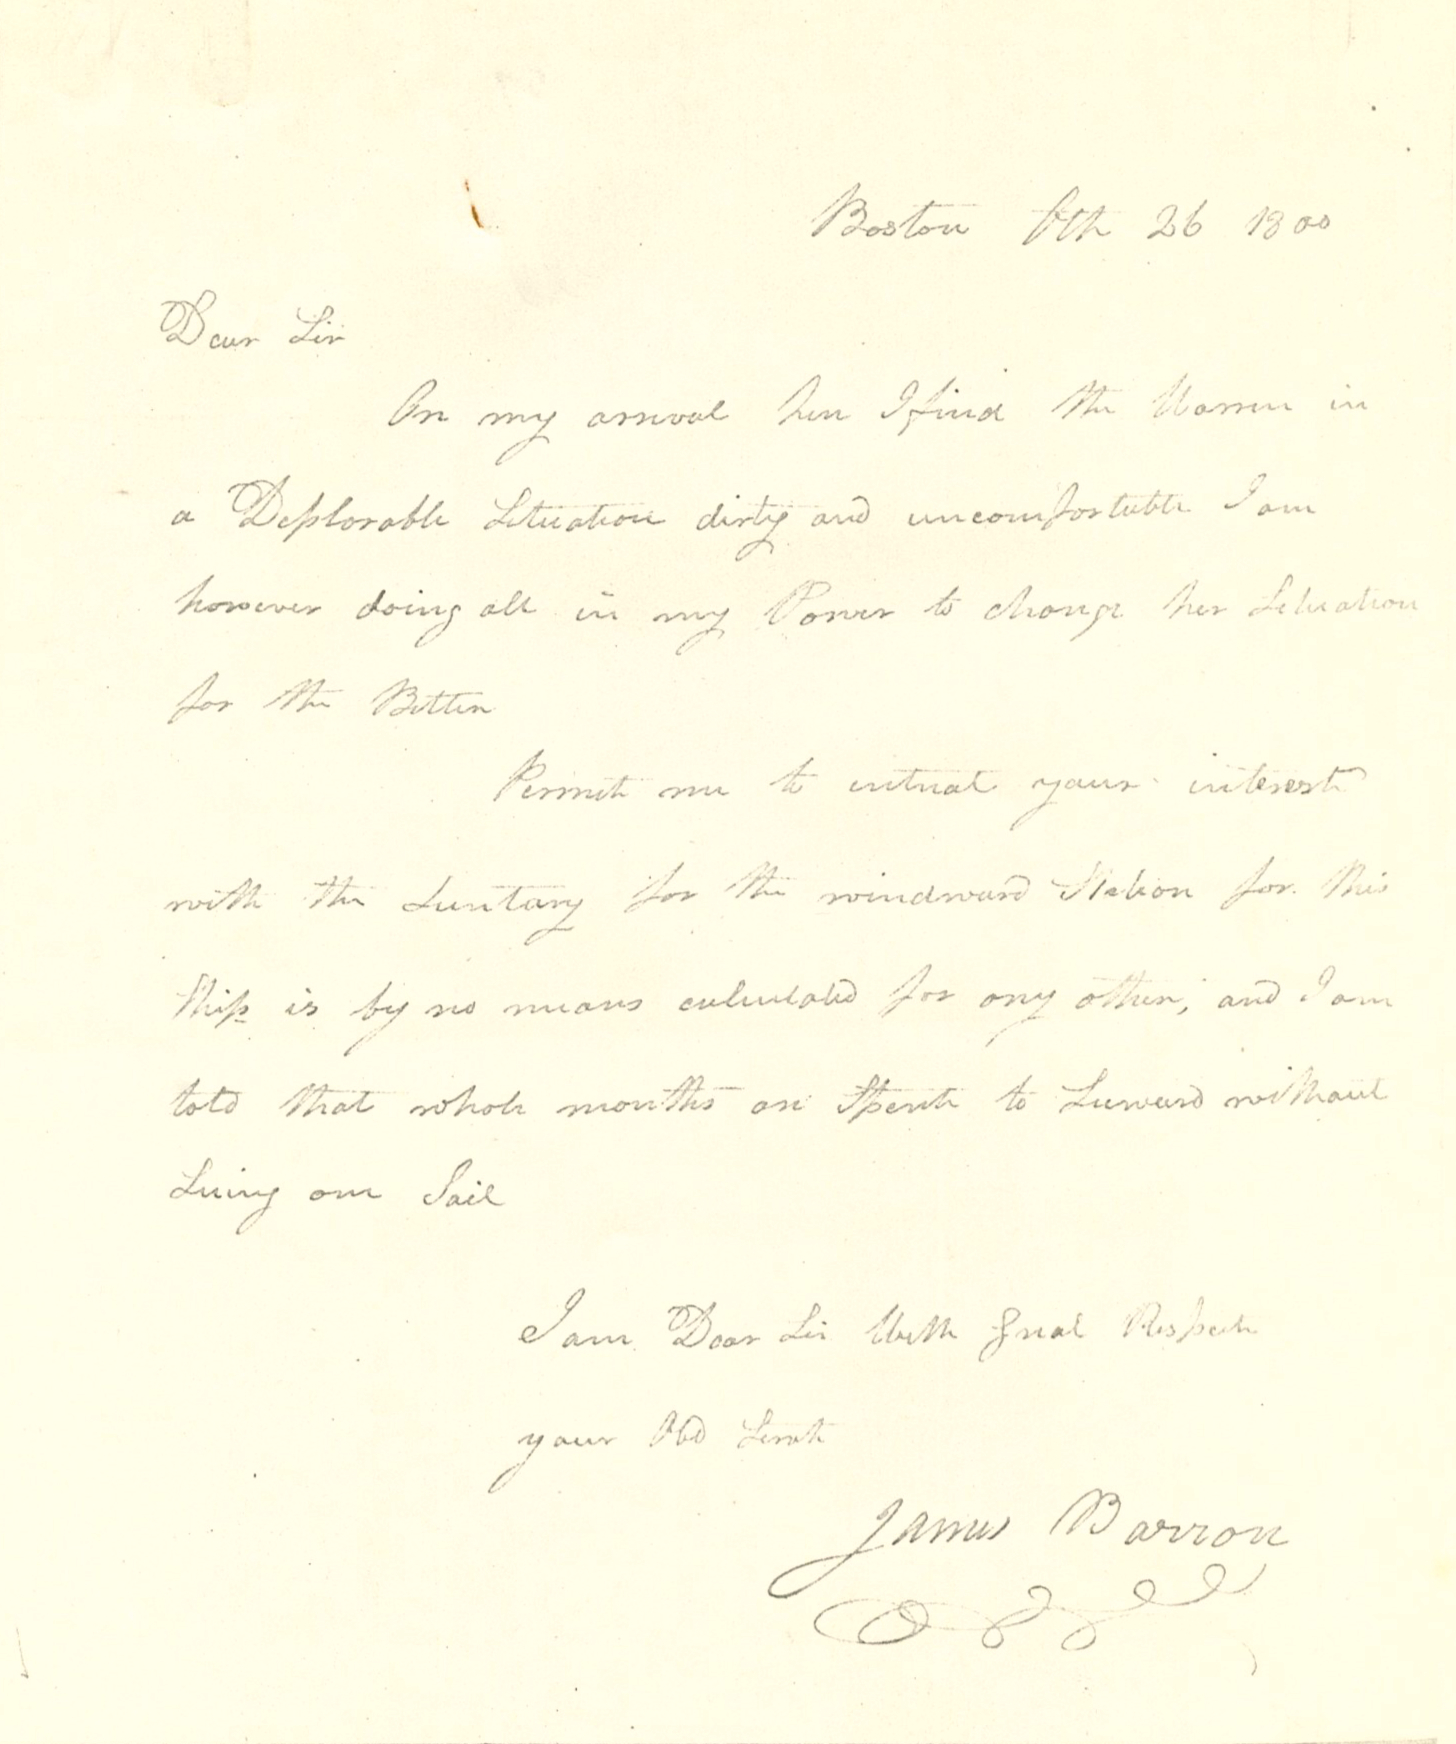 Boston Octr 26 1800
Dear Sir
On my arrival here I find the Warren in
a Deplorable Situation dirty and uncomfortable I am
however doing all in my Power to change her Situation
for the Better
Permit me to intreat your interest
with the Secretary for the windward Station for this
Ship is by no means calculated for any other, and I am
told that whole months are Spent to Leeward without
Seeing one Sail
I am Dear Sir With great Respect
your Obd Servt
James Barron